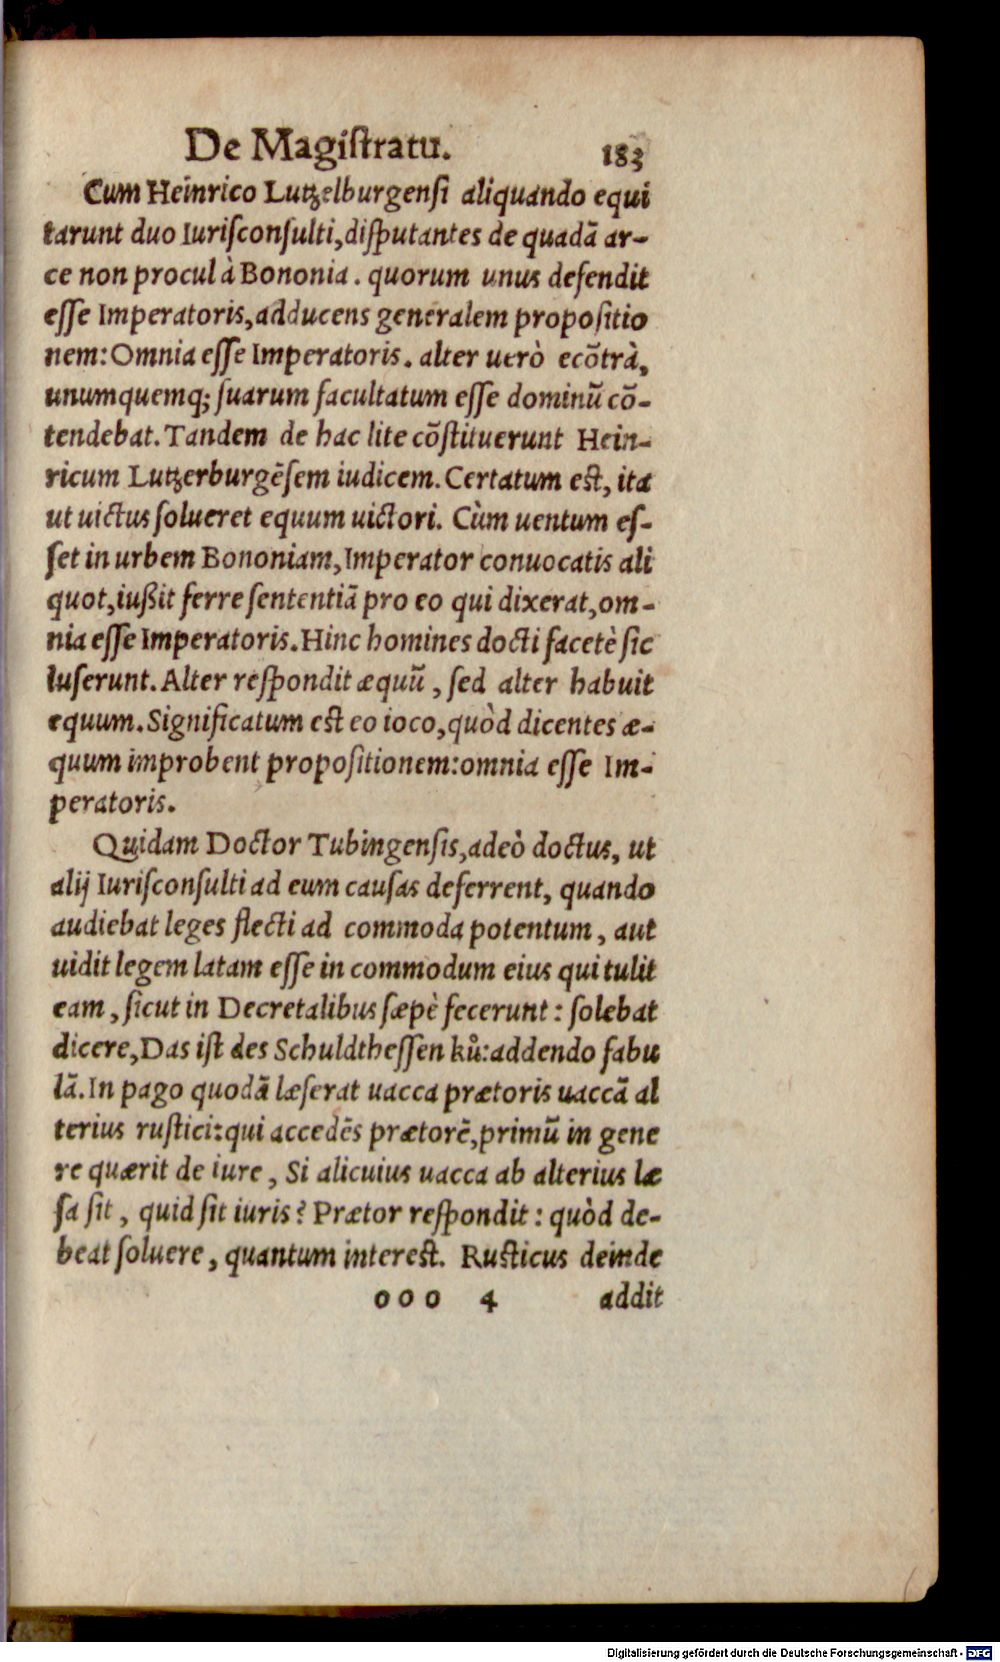 De Magiſtratu. 183
Cum Heinrico Lutzelburgenſi aliquando equi
tarunt duo Iuriſconſulti,diſputantes de quadã ar-
ce non procul à Bononia. quorum unus defendit
eſſe Imperatoris,adducens generalem propoſitio
nem: Omnia eſſe Imperatoris. alter uerò ecõtrà,
unumquemq; ſuarum facultatum eſſe dominũ cõ-
tendebat. Tandem de hac lite cõſtituerunt Hein-
ricum Lutzerburgẽſem iudicem. Certatum eſt, ita
ut uictus ſolueret equum uictori. Cùm uentum eſ-
ſet in urbem Bononiam, Imperator conuocatis ali
quot,iußit ferre ſententiã pro eo qui dixerat,om-
nia eſſe Imperatoris. Hinc homines docti facetè ſic
luſerunt. Alter reſpondit æquũ, ſed alter habuit
equum. Significatum eſt eo ioco,quòd dicentes æ-
quum improbent propoſitionem:omnia eſſe Im-
peratoris.
Quidam Doctor Tubingenſis,adeò doctus, ut
alij Iuriſconſulti ad eum cauſas deferrent, quando
audiebat leges flecti ad commoda potentum, aut
uidit legem latam eſſe in commodum eius qui tulit
eam, ſicut in Decretalibus ſæpè fecerunt: ſolebat
dicere,Das iſt des Schuldtheſſen ků:addendo fabu
lã. In pago quodã læſerat uacca prætoris uaccã al
terius ruſtici:qui accedẽs prætorẽ,primũ in gene
re quærit de iure, Si alicuius uacca ab alterius læ
ſa ſit, quid ſit iuris? Prætor reſpondit: quòd de-
beat ſoluere, quantum intereſt. Ruſticus deinde
ooo 4 addit
Digitalisierung gefördert durch die Deutsche Forschungsgemeinschaft - DFG